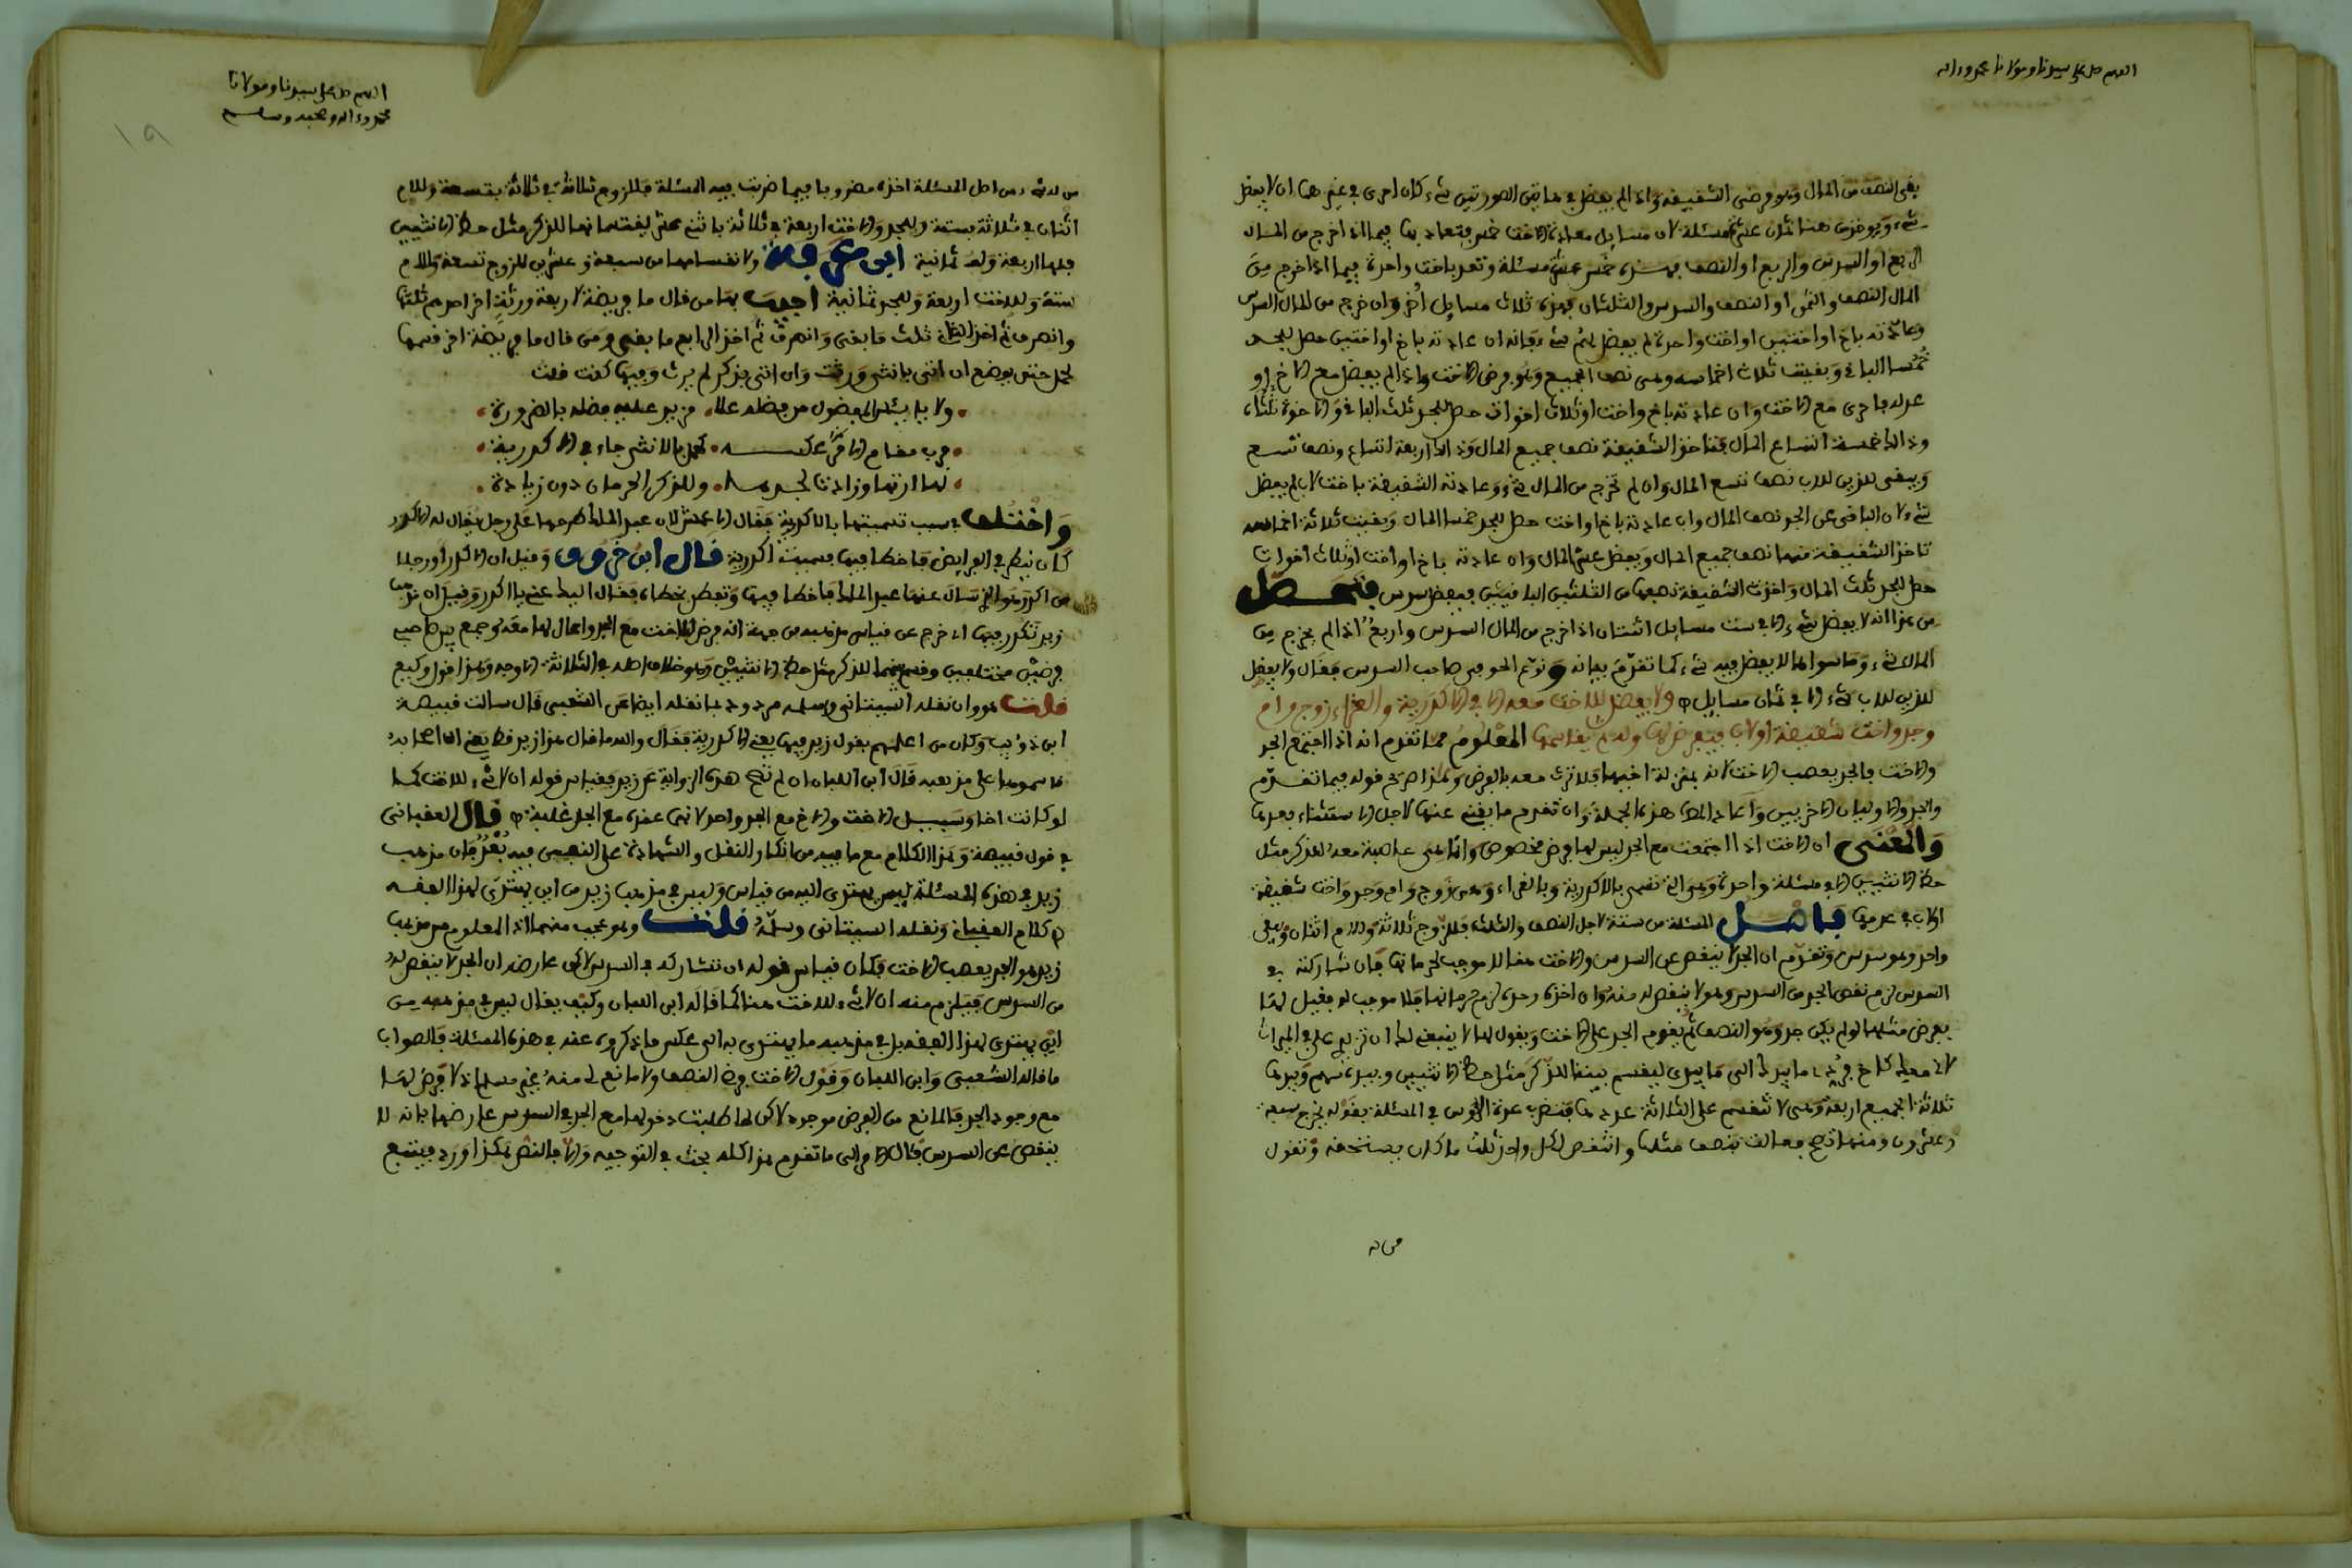 اللهم صل على سيدنا ومولانا محمد وءاله
بقى النصف من المال وهو فرض الشقيقة واذا لم يفضل في هاتين الصورتين شيء كان احرى في غيرهما ان لا يفضل
شيء ويوخذ من هنا ثمان عشرة مسئلة لان مسايل معادة الاخت خمس فتعاد بها فيما اذا اخرج من المال
الربع او السدس والربع او النصف فهذه خمس عشرة مسئلة وتعد باخت واحدة فيما اذا اخرج من
المال النصف والثمن او النصف والسدس والثلثان فهذه ثلاث مسايل أخر وان خرج من المال السدس
وعادته باخ او اختين او اخت واحدة لم يفضل لهم شيء فانه ان عادته باخ او اختين حصل للجد
خُمُسا الباقي وبقيت ثلاث اخماسه وهي نصف الجميع وهو فرض الاخت واذا لم يفضل مع الاخ او
عدله فاحرى مع الاخت وان عادته باخ واخت او ثلاث اخوات حصل للجد ثلث الباقي وللاخوة ثلثاه
وذلك خمسة اتساع المال فتاخذ الشقيقة نصف جميع المال وذلك اربعة اتساع ونصف تسع
ويبقى للذين للاب نصف تسع المال وان لم تخرج من المال شيء وعادته الشقيقة باخت لاب لم يفضل
شيء لان الباقي عن الجد نصف المال وان عادته باخ او اخت حصل للجد خمسا المال وبقيت ثلاثة اخماسه
تاخذ الشقيقة منها نصف جميع المال ويفضل عشر المال وان عادته باخ او اخت او ثلاث اخوات
حصل للجد ثلث المال واخذت الشقيقة نصفها من الثلثين الباقيين فيفضل سدس فتحصل
من هذا انه لا يفضل شيء الا في ست مسايل اثنتان اذا اخرج من المال السدس واربعُ اذا لم يخرج من
المال شيء وما سواها لا يفضل فيه شيء كما تقدّم بيانه ونوع الحوفي صاحب السدس فقال ولا يفضل
للذين للاب شيء الا في ثمان مسايل ولا يفرض للاخت معه الا في الاكدرية والغراء زوج وام
وجد واخت شقيقة او لاب فيفرض لها وله ثم يقاسمها المعلوم مما تقدم انه اذا اجتمع الجد
والاخت فالجد يعصب الاخت لانه بمنزلة اخيها فلا ترث معه بالفرض وهذا صريح قوله فيما تقدّم
والجد والاوليان الاخريين واعاد المص هذه الجملة وان تقدم ما يغني عنها لاجل الاستثناء بعدها
وَالمعنى ان الاخت اذا اجتمعت مع الجد ليس لها فرض مخصوص وانما هي عاصبة معه للذكر مثل
حظ الانثيين الا في مسئلة واحدة وهي التي تسمى بالاكدرية وبالغراء وهي زوج وام وجد واخت شقيقة
او لاب في عدمها فاصل المسئلة من ستة لاجل النصف والثلث فللزوج ثلاثة وللام اثنان وبقي
واحد وهو سدس وتقدّم ان الجد لا ينقص عن السدس والاخت هنا لا موجب لحرمانها فان شاركته في
السدس لزم نقص الجد من السدس وهو لا ينقص له منه وان اخذه وحده لزم حرمانها فلا موجب له فقيل لها
بفرض مثلها لو لم يكن جد وهو النصف ثم يقوم الجد على الاخت ويقول لها لا ينبغي لك ان تزيد علي في الميراث
لاني معك كاخ فردّي ما بيدك الى ما بيدي ليقسم بيننا للذكر مثل حظ الانثيين وبيده سهم وبيدها
ثلاثة الجميع اربعة وهي لا تنقسم على الثلاثة عددها فتضرب عدة الرءوس في المسئلة بعولها يخرج سبعة
وعشرون ومنها تصح فعالت بنصف مثلها وانتقص لكل واحد ثلث ما كان يستحقه وتقول
من له
اللهم صل على سيدنا ومولانا
محمد وءاله وصحبه وسلم
١٩
من له شيء من اصل المسئلة اخذه مضروبا فيما ضربت فيه المسئلة فللزوج ثلاثة في ثلاثة بتسعة وللام
اثنان في ثلاثة بستة وللجد والاخت اربعة في ثلاثة باثني عشر يقتسمانها للذكر مثل حظ الانثيين
فلها اربعة وله ثمانية ابن عرفة ولانقسامها من سبعة وعشرين للزوج تسعة وللام
ستة وللاخت اربعة وللجد ثمانية اجيب بها من قال ما فريضة لاربعة ورثة اخذ احدهم ثلثها
وانصرف ثم اخذ الثاني ثلث ما بقي وانصرف ثم اخذ الرابع ما بقي ومن قال ما فريضة اخر قسمها
لحمل حتى يوضع ان اتى بانثى ورثت وان اتى بذكر لم يرث وفيها كنت قلت
ولا ييأس المفضول من فضله علا مزيد عليه فضله بالضرورة
فرب مقام انتج عكسه كحمل بالانثى جاء في الاكدرية
لها ارثها وزادت لجدها وللذكر الحرمان دون زيادة
وَاختُلف في سبب تسميتها بالاكدرية فقال الاعمش لان عبد الملك طرحها على رجل يقال له الاكدر
كان ينظر في الفرايض فاخطا فيها فسميت اكدرية قال ابن خروف وقيل ان الاكدر او رجلا
من اكدر هو الذي سال عنها عبد الملك فاخطا فيها وتفطن لخطاه فقال اليك عني يا اكدر وقيل ان مذهب
زيد تكدر فيها اذ خرج عن قياس مذهبه من جهة انه فرض للاخت مع الجد واعال لها معه وجمع بين صاحبي
فرضين مختلفين وقسم بينهما للذكر مثل حظ الانثيين وهو خلاف اصله في الثلاثة الاوجه وهذا قول وكيع
قلت هو وان نقله السيتاني وسلمه مردود بما نقله ايضا عن الشعبي قال سالت قبيصة
ابن ذؤيب وكان من اعلمهم بقول زيد فيها يعني الاكدرية فقال والله ما قال هذا زيد قط يعني ان اصحابه
قاسموها على مذهبه قال ابن اللبان ان لم تصح هذه الرواية عن زيد فقياس قوله ان لا شيء للاخت كما
لو كانت اخا وسبيل الاخت والاخ مع الجد واحد لانها عنده مع الجد غلبة قال العقباني
في قول قبيصة وهذا الكلام مع ما فيه من انكار النقل والشهادة على النفي فيه بُعدٌ فان مذهب
زيد في هذه المسئلة ليس يهتدى اليه من قياس وليس في مذهب زيد من اين يهتدَى لهذا الفقه
كلام العقباني ونقله السيتاني وسلّمهُ قلت وهو عجيب منهما اذ المعلوم من مذهب
زيد هو الجد يعصب الاخت فكان قياس قوله ان تشاركه في السدس لاكن عارضه ان الجد لا ينقص له
من السدس فيلزم منه ان لا شيء للاخت هنا كما قاله ابن اللبان وكيف يقال ليس في مذهبه من
اين يهتدى لهذا الفقه بل في مذهبه ما يهتدى به الى عكس ما ذكروه عنه في هذه المسئلة فالصواب
ما قاله الشعبي وابن اللبان وقول الاخت فرضي النصف ولا مانع لي منهُ غير مسلم اذ لا فرضَ لها
مع وجود الجد فالمانع من الفرض موجود لاكن لما طلبت دخولها مع الجد في السدس عارضها بانه لا
ينقص عن السدس فئال الامر الى ما تقدم هذا كله بحث في التوجيه والا فالنص هكذا ورد فيتبع